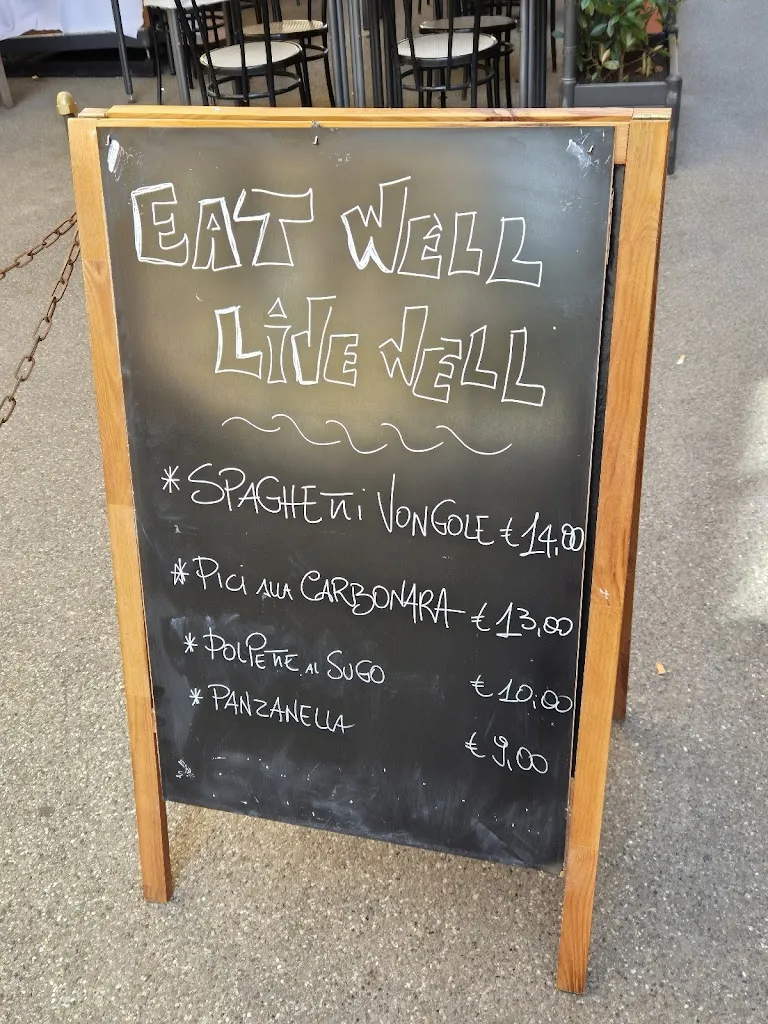 EAT WELL
LIVE WELL
* SPAGHETTI VONGOLE € 14,00
* PICI ALLA CARBONARA € 13,00
* POLPETTE AL SUGO € 10,00
* PANZANELLA € 9,00